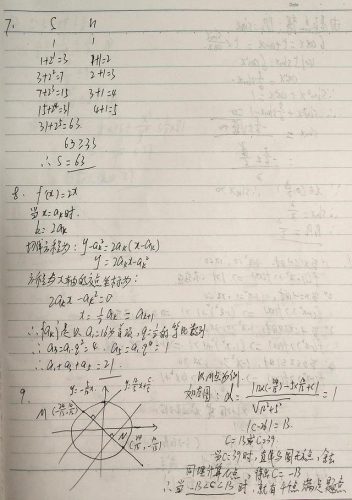 7.
S n
1 1
1+2¹=3 1+1=2
3+2²=7 2+1=3
7+2³=15 3+1=4
15+2⁴=31 4+1=5
31+2⁵=63
63≥33
∴ S=63
8. f'(x)=2x
当x=aₖ时.
k=2aₖ
切线方程为: y-aₖ²=2aₖ(x-aₖ)
y=2aₖx-aₖ²
方程与x轴的交点坐标为:
2aₖx-aₖ²=0
x=½aₖ=aₖ₊₁
∴{aₖ}是以a₁=16为首项, q=½的等比数列
∴a₃=a₁·q²=4 a₅=a₁q⁴=1
∴a₁+a₃+a₅=21
9.
M
N
如右图: d= =1
|c-26|=13.
c=13或c=39
当c=39时, 直线与圆无交点, 舍去
同理计算 点, 得出c=-13
∴当-13<c<13时, 就有4个点满足题意